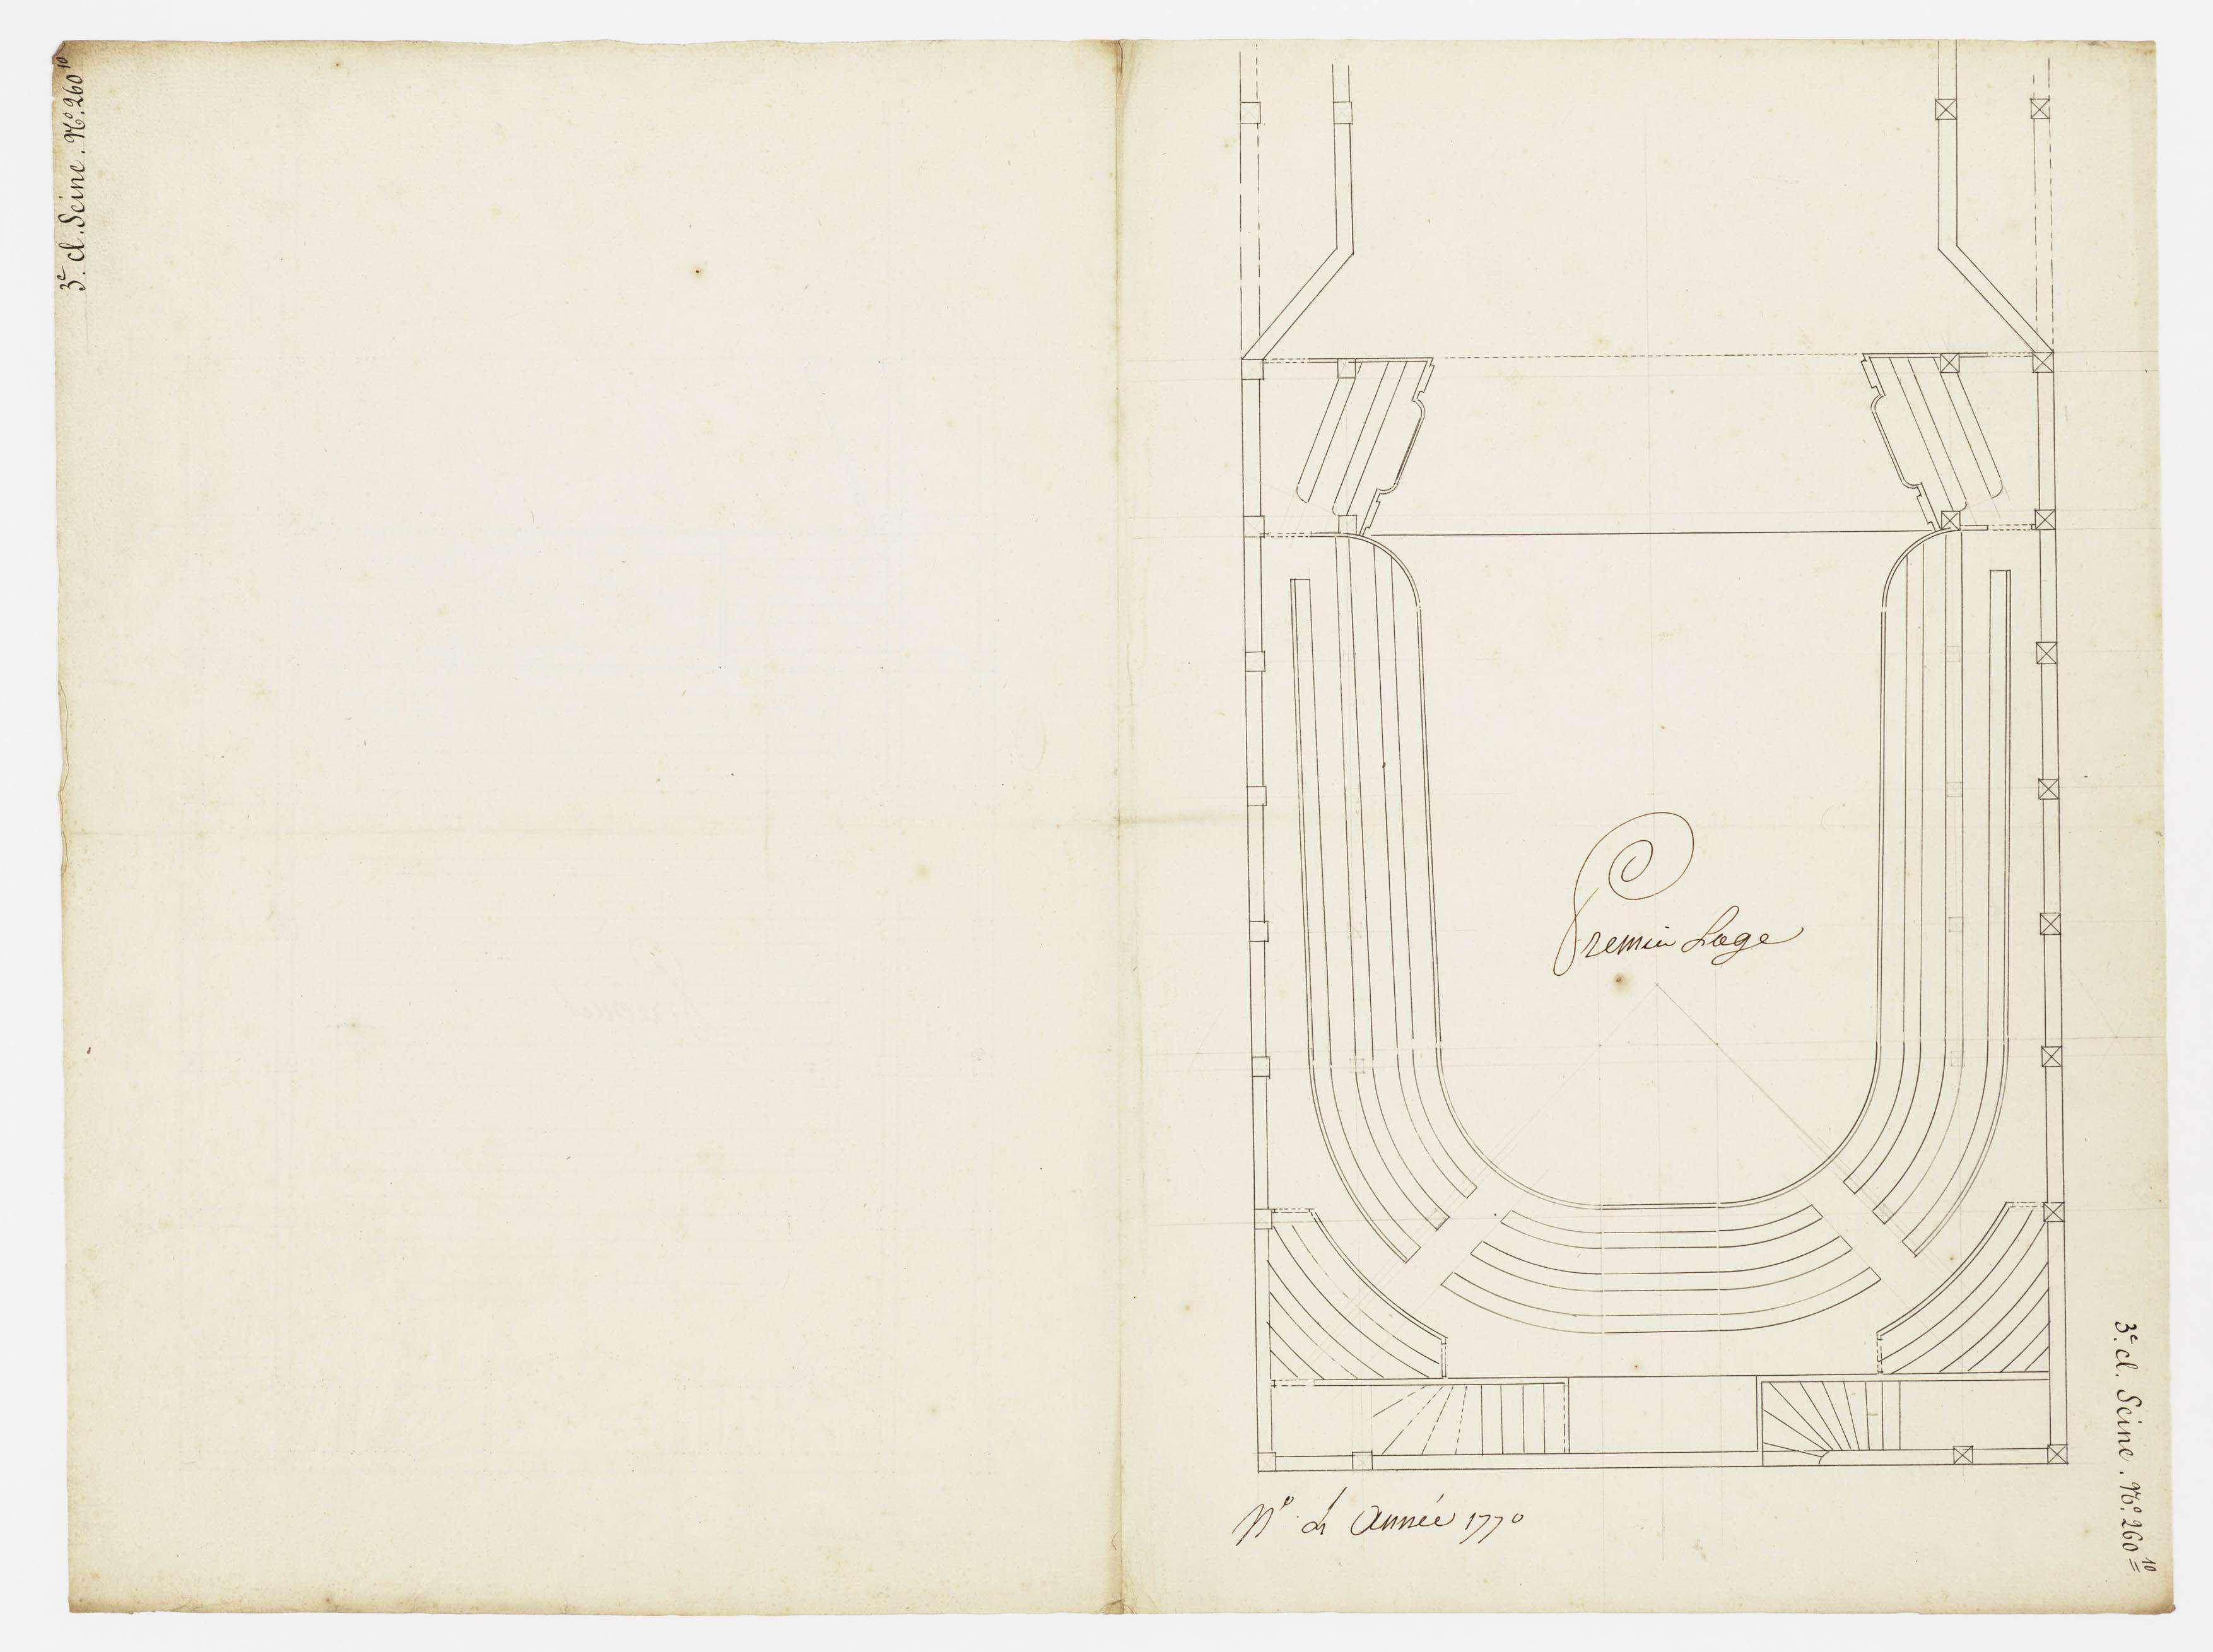 3e. cl. Seine. No. 260 10
Premier Loge
No Année 1770
3e. cl. Seine. No. 260 10